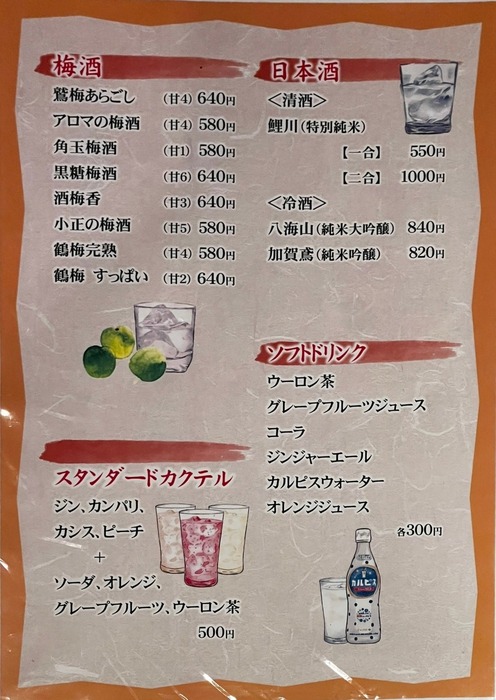 梅酒
鶯梅あらごし (甘4) 640円
アロマの梅酒 (甘4) 580円
角玉梅酒 (甘1) 580円
黒糖梅酒 (甘6) 640円
酒梅香 (甘3) 640円
小正の梅酒 (甘5) 580円
鶴梅完熟 (甘4) 580円
鶴梅 すっぱい (甘2) 640円
スタンダードカクテル
ジン、カンパリ、
カシス、ピーチ
+
ソーダ、オレンジ、
グレープフルーツ、ウーロン茶
500円
日本酒
＜清酒＞
鯉川(特別純米)
【一合】 550円
【二合】 1000円
＜冷酒＞
八海山(純米大吟醸) 840円
加賀鳶(純米吟醸) 820円
ソフトドリンク
ウーロン茶
グレープフルーツジュース
コーラ
ジンジャーエール
カルピスウォーター
オレンジジュース
各300円
カルピス